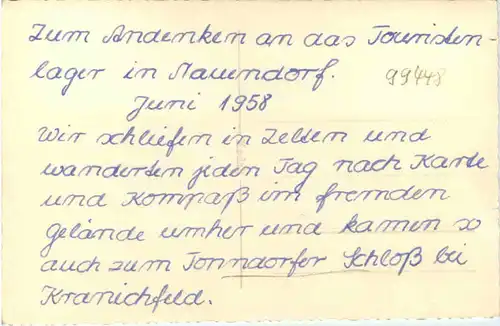 Zum Andenken an das Touristen-
lager in Nauendorf.
99448
Juni 1958
Wir schliefen in Zelten und
wanderten jeden Tag nach Karte
und Kompaß im fremden
gelände umher und kamen so
auch zum Tonndorfer Schloß bei
Kranichfeld.